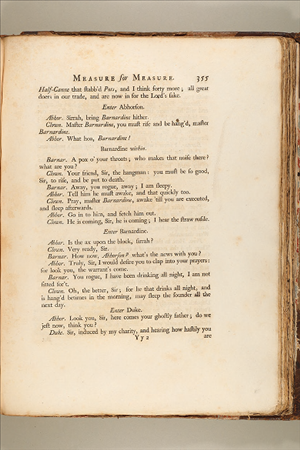 MEASURE for MEASURE. 355
Half-Canne that stabb'd Pots, and I think forty more; all great
doers in our trade, and are now in for the Lord's sake.
Enter Abhorson.
Abhor. Sirrah, bring Barnardine hither.
Clown. Master Barnardine, you must rise and be hang'd, master
Barnardine.
Abhor. What hoa, Barnardine!
Barnardine within.
Barnar. A pox o' your throats; who makes that noise there?
what are you?
Clown. Your friend, Sir, the hangman: you must be so good,
Sir, to rise, and be put to death.
Barnar. Away, you rogue, away; I am sleepy.
Abhor. Tell him he must awake, and that quickly too.
Clown. Pray, master Barnardine, awake 'till you are executed,
and sleep afterwards.
Abhor. Go in to him, and fetch him out.
Clown. He is coming, Sir, he is coming; I hear the straw rustle.
Enter Barnardine.
Abhor. Is the ax upon the block, sirrah?
Clown. Very ready, Sir.
Barnar. How now, Abhorson? what's the news with you?
Abhor. Truly, Sir, I would desire you to clap into your prayers:
for look you, the warrant's come.
Barnar. You rogue, I have been drinking all night, I am not
fitted for't.
Clown. Oh, the better, Sir; for he that drinks all night, and
is hang'd betimes in the morning, may sleep the sounder all the
next day.
Enter Duke.
Abhor. Look you, Sir, here comes your ghostly father; do we
jest now, think you?
Duke. Sir, induced by my charity, and hearing how hastily you
Yy2 are